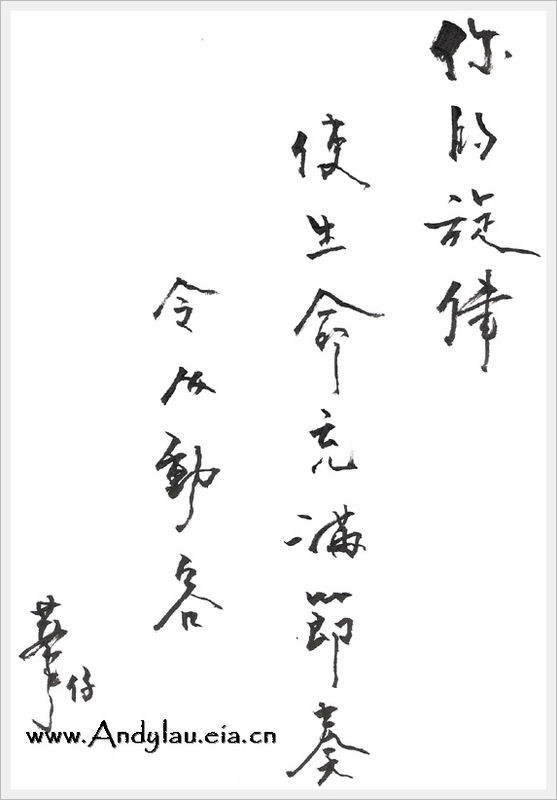 你的旋律
使生命充滿節奏
令人動容
華仔
www.Andylau.eia.cn